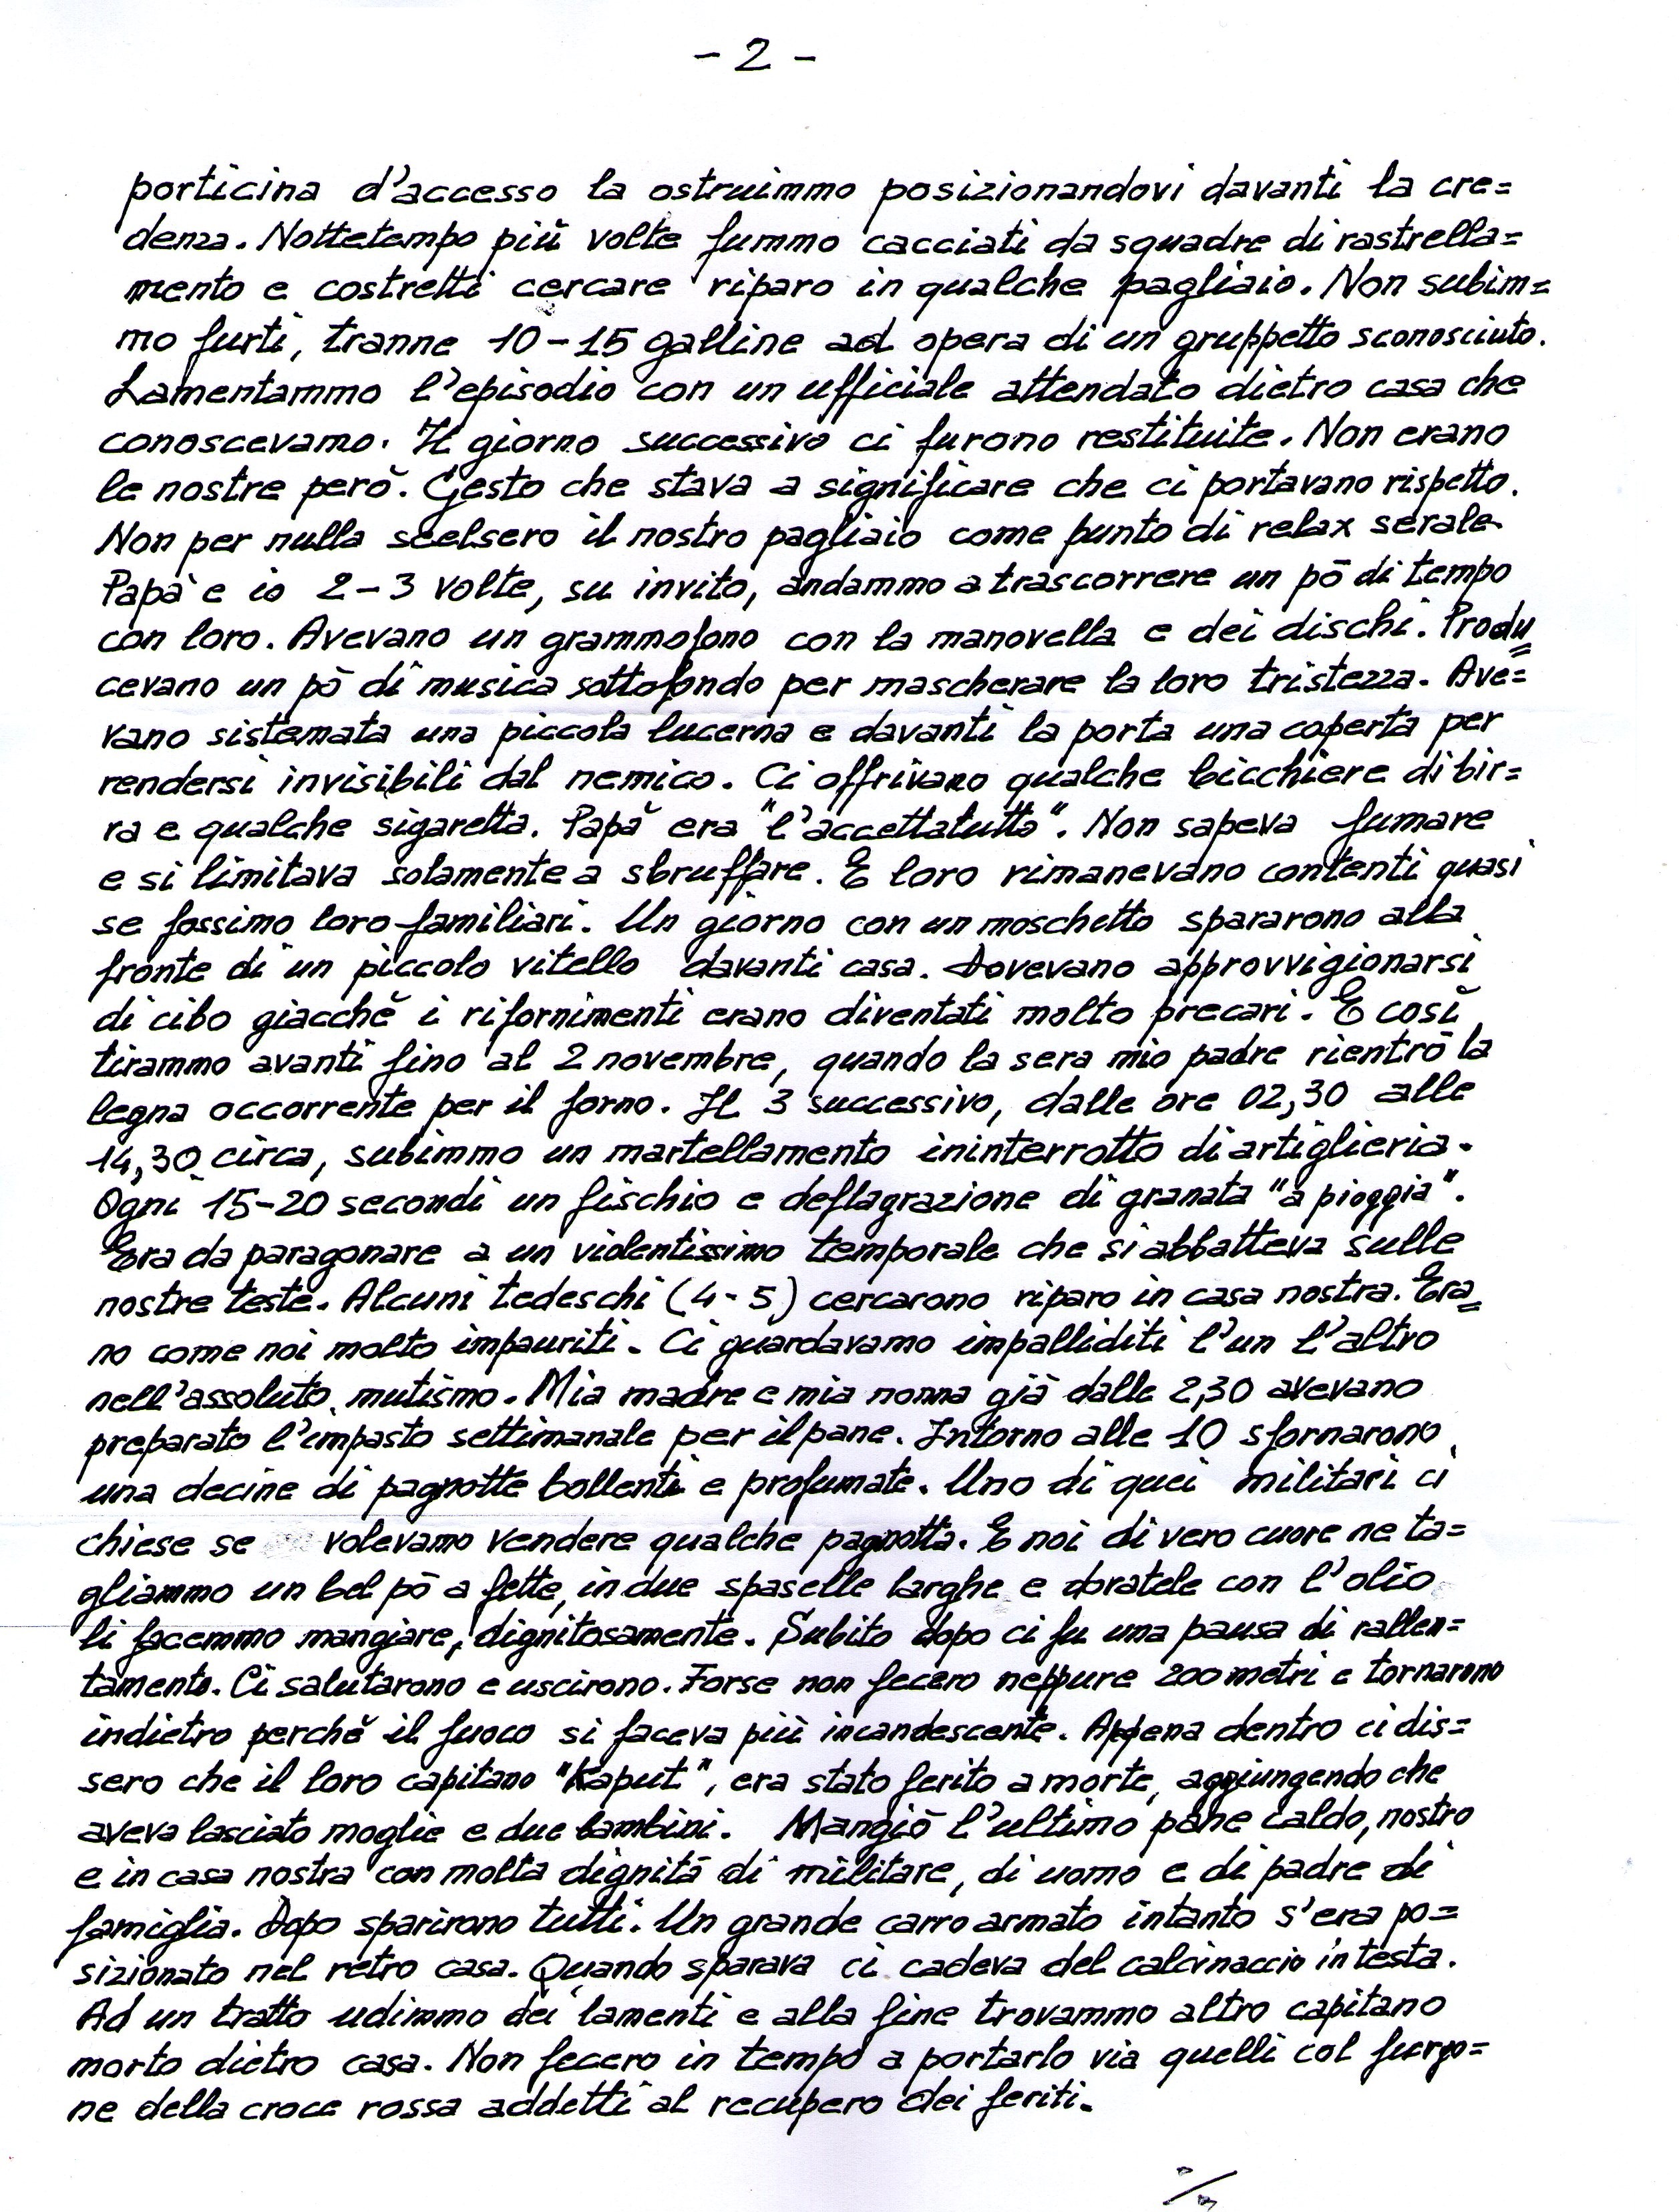 - 2 -
porticina d'accesso la ostruimmo posizionandovi davanti la cre=
denza. Nottetempo più volte fummo cacciati da squadre di rastrella=
mento e costretti cercare riparo in qualche pagliaio. Non subim=
mo furti, tranne 10-15 galline ad opera di un gruppetto sconosciuto.
Lamentammo l'episodio con un ufficiale attendato dietro casa che
conoscevamo. Il giorno successivo ci furono restituite. Non erano
le nostre però. Gesto che stava a significare che ci portavano rispetto.
Non per nulla scelsero il nostro pagliaio come punto di relax serale
Papà e io 2-3 volte, su invito, andammo a trascorrere un pò di tempo
con loro. Avevano un grammofono con la manovella e dei dischi. Produ=
cevano un pò di musica sottofondo per mascherare la loro tristezza. Ave=
vano sistemata una piccola lucerna e davanti la porta una coperta per
rendersi invisibili dal nemico. Ci offrivano qualche bicchiere di bir=
ra e qualche sigaretta. Papà era "l'accettatutto". Non sapeva fumare
e si limitava solamente a sbruffare. E loro rimanevano contenti quasi
se fossimo loro familiari. Un giorno con un moschetto spararono alla
fronte di un piccolo vitello davanti casa. Dovevano approvvigionarsi
di cibo giacchè i rifornimenti erano diventati molto precari. E così
tirammo avanti fino al 2 novembre, quando la sera mio padre rientrò la
legna occorrente per il forno. Il 3 successivo, dalle ore 02,30 alle
14,30 circa, subimmo un martellamento ininterrotto di artiglieria.
Ogni 15-20 secondi un fischio e deflagrazione di granata "a pioggia".
Era da paragonare a un violentissimo temporale che si abbatteva sulle
nostre teste. Alcuni tedeschi (4-5) cercarono riparo in casa nostra. Era=
no come noi molto impauriti. Ci guardavamo impalliditi l'un l'altro
nell'assoluto mutismo. Mia madre e mia nonna già dalle 2,30 avevano
preparato l'impasto settimanale per il pane. Intorno alle 10 sfornarono
una decine di pagnotte bollenti e profumate. Uno di quei militari ci
chiese se volevamo vendere qualche pagnotta. E noi di vero cuore ne ta=
gliammo un bel pò a fette, in due spaselle larghe e doratele con l'olio
li facemmo mangiare, dignitosamente. Subito dopo ci fu una pausa di rallen=
tamento. Ci salutarono e uscirono. Forse non fecero neppure 200 metri e tornarono
indietro perchè il fuoco si faceva più incandescente. Appena dentro ci dis=
sero che il loro capitano "Kaput", era stato ferito a morte, aggiungendo che
aveva lasciato moglie e due bambini. Mangiò l'ultimo pane caldo, nostro
e in casa nostra con molta dignità di militare, di uomo e di padre di
famiglia. Dopo sparirono tutti. Un grande carro armato intanto s'era po=
sizionato nel retro casa. Quando sparava ci cadeva del calcinaccio in testa.
Ad un tratto udimmo dei lamenti e alla fine trovammo altro capitano
morto dietro casa. Non fecero in tempo a portarlo via quelli col furgo=
ne della croce rossa addetti al recupero dei feriti.